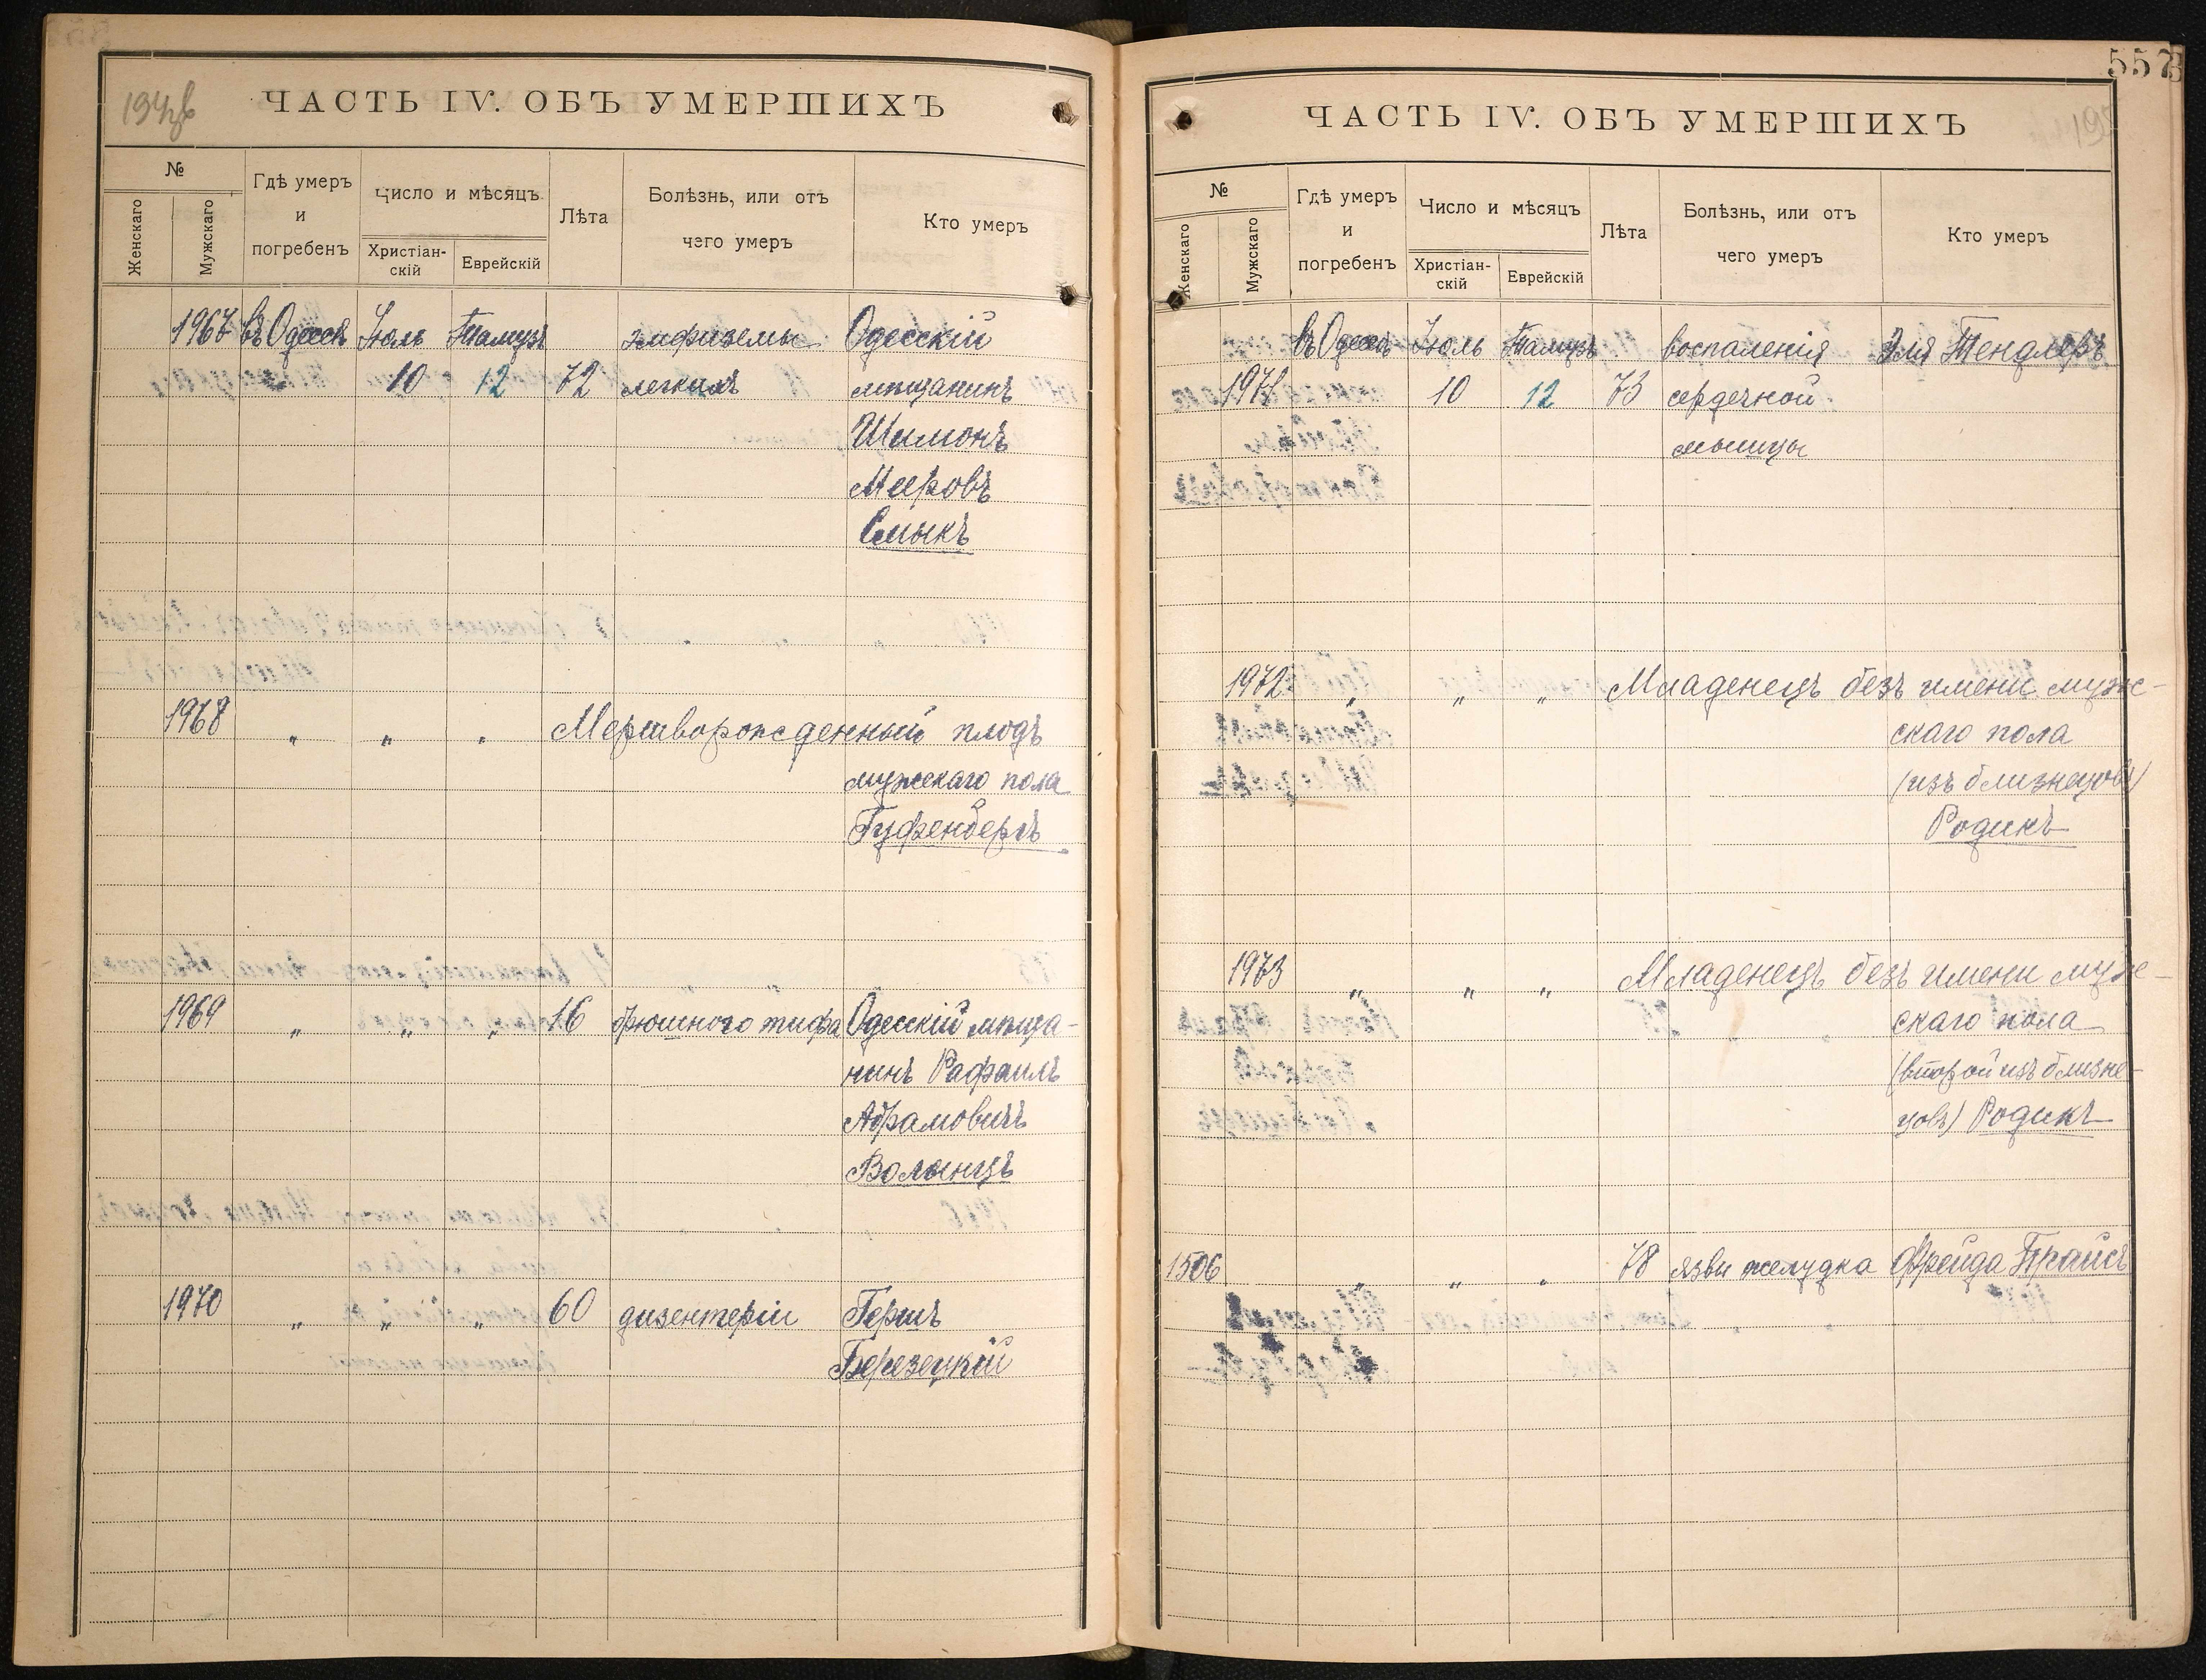 194 об
ЧАСТЬ IV. ОБЪ УМЕРШИХЪ
№
Женскаго
Мужскаго
Гдѣ умеръ
и
погребенъ
Число и мѣсяцъ
Христіан-
скій
Еврейскій
Лѣта
Болѣзнь, или отъ
чего умеръ
Кто умеръ
1967 въ Одессѣ Іюль Тамузъ эмфиземы Одесскій
10 12 72 легкихъ мѣщанинъ
Шимонъ
Мееровъ
Смыкъ
1968 " " " Мертворожденный плодъ
мужскаго пола
Гуфенбергъ
1969 " " " 16 брюшного тифа Одесскій мѣща-
нинъ Рафаилъ
Абрамовичъ
Волынецъ
1970 " " " 60 дизентеріи Гершъ
Березецкій
557
ЧАСТЬ IV. ОБЪ УМЕРШИХЪ
№
Женскаго
Мужскаго
Гдѣ умеръ
и
погребенъ
Число и мѣсяцъ
Христіан-
скій
Еврейскій
Лѣта
Болѣзнь, или отъ
чего умеръ
Кто умеръ
въ Одессѣ Іюль Тамузъ воспаленія Эля Тендлеръ
1971 10 12 73 сердечной
мышцы
1972 " " " Младенецъ безъ имени муж-
скаго пола
(изъ близнецовъ)
Родикъ
1973 " " " Младенецъ безъ имени муж-
скаго пола
(второй изъ близне-
цовъ) Родикъ
1506 " " " 78 язвы желудка Фрейда Прайсъ